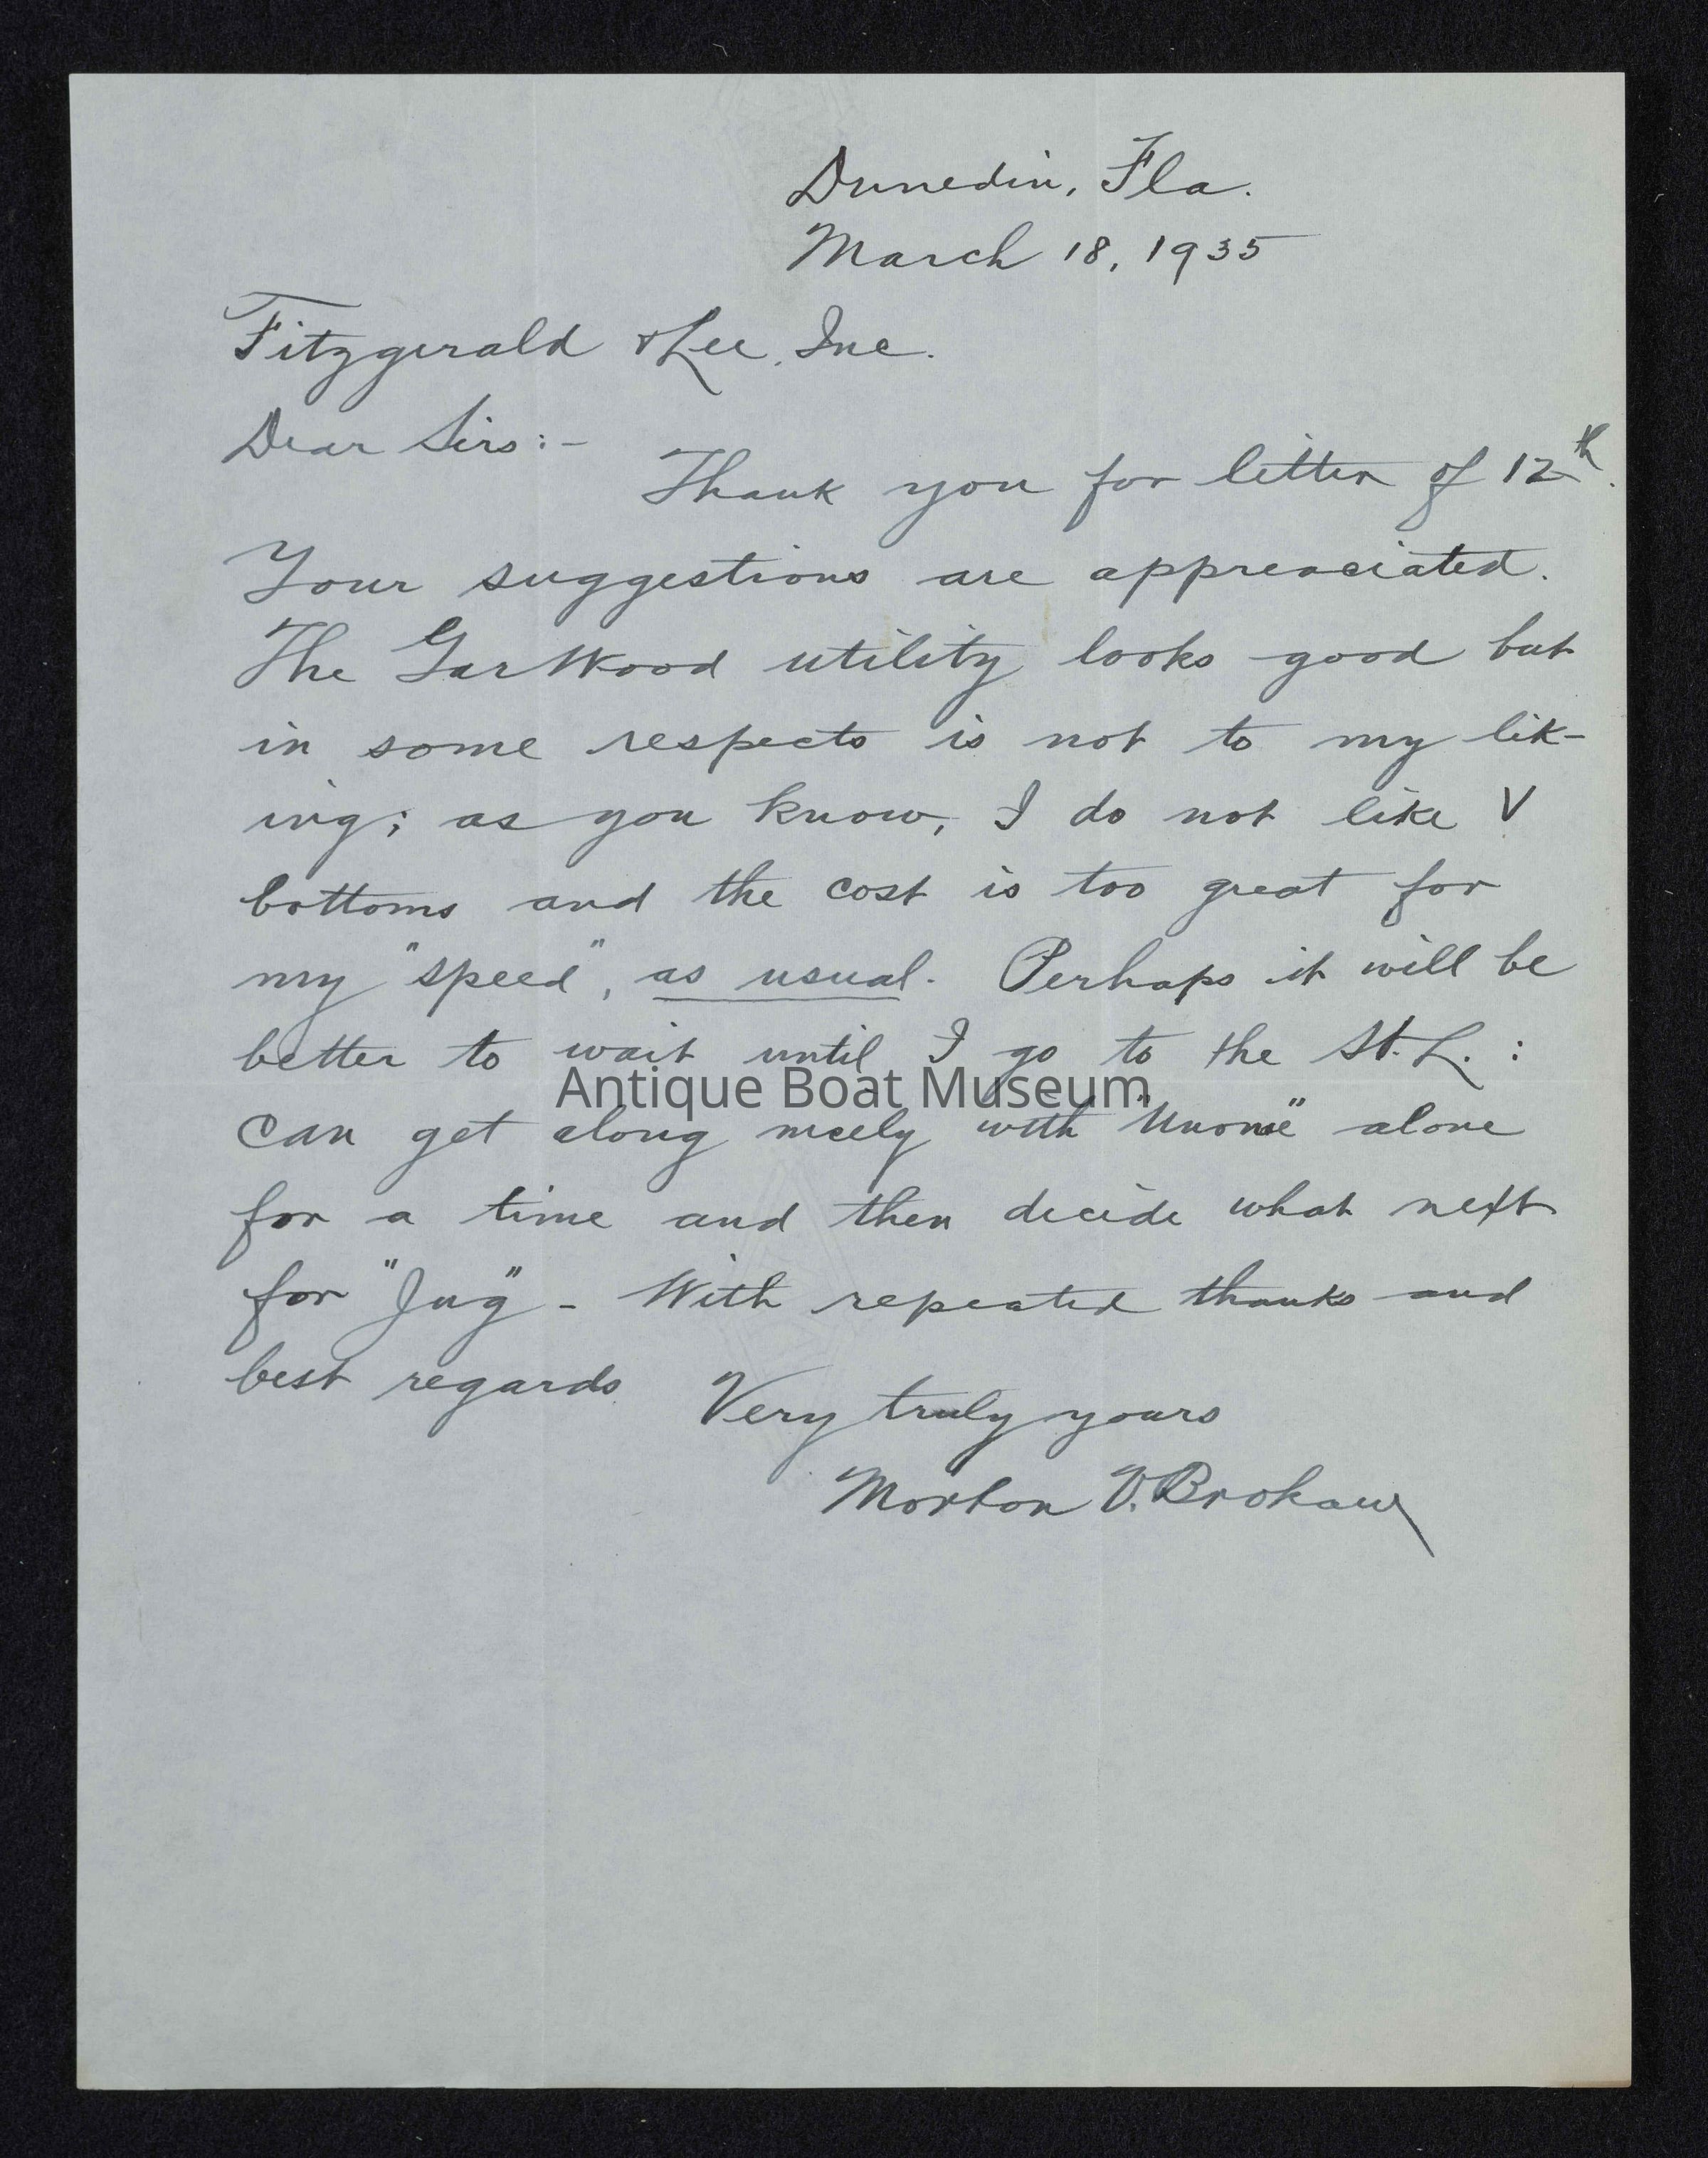 Dunedin, Fla.
March 18, 1935
Fitzgerald & Lee, Inc.
Dear Sirs:-
Thank you for letter of 12th.
Your suggestions are appreaciated.
The GarWood utility looks good but
in some respects is not to my lik-
ing; as you know, I do not like V
bottoms and the cost is too great for
my "speed", as usual. Perhaps it will be
better to wait until I go to the St. L. :
Antique Boat Museum
can get along nicely with alone
for a time and then decide what next
for "Jug" - With repeated thanks and
best regards
Very truly yours
Morton V. Brokaw